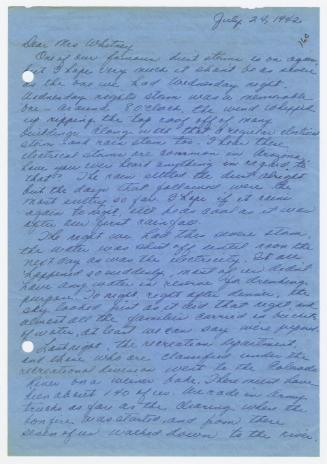 July 24, 1942
160
Dear Mrs Whitney
One of our famous dust storms is on again
but I hope very much it shan't be as severe
as the one we had Wednesday night.
Wednesday night's storm was a memorable
one - around 8 o'clock the wind whipped
up ripping the tar roof off of many
buildings. Along with that a regular electrical
storm and rain storm too. I hear these
electrical storms are common in Arizona.
Have you ever heard anything in regard to
that? The rain settled the dust alright
but the days that followed were the
most sultry so far. I hope if it rains
again to-night, it'll be as cool as it was
after our first rainfall.
The night we had this severe storm
the water was shut off until noon the
next day as was the electricity. It all
happened so suddenly, most of us didn't
have any water in reserve for drinking
purpose. To-night, right after dinner, the
sky looked just as it did that night and
almost all the families carried in buckets
of water. At least we can say were prepared.
Last night, the recreation department
and those who are classified under the
recreational division went to the Colorado
River on a weiner bake. There must have
been about 140 of us. We rode in Army
trucks as far as the clearing where the
bonfire was started and from there
some of us walked down to the river.